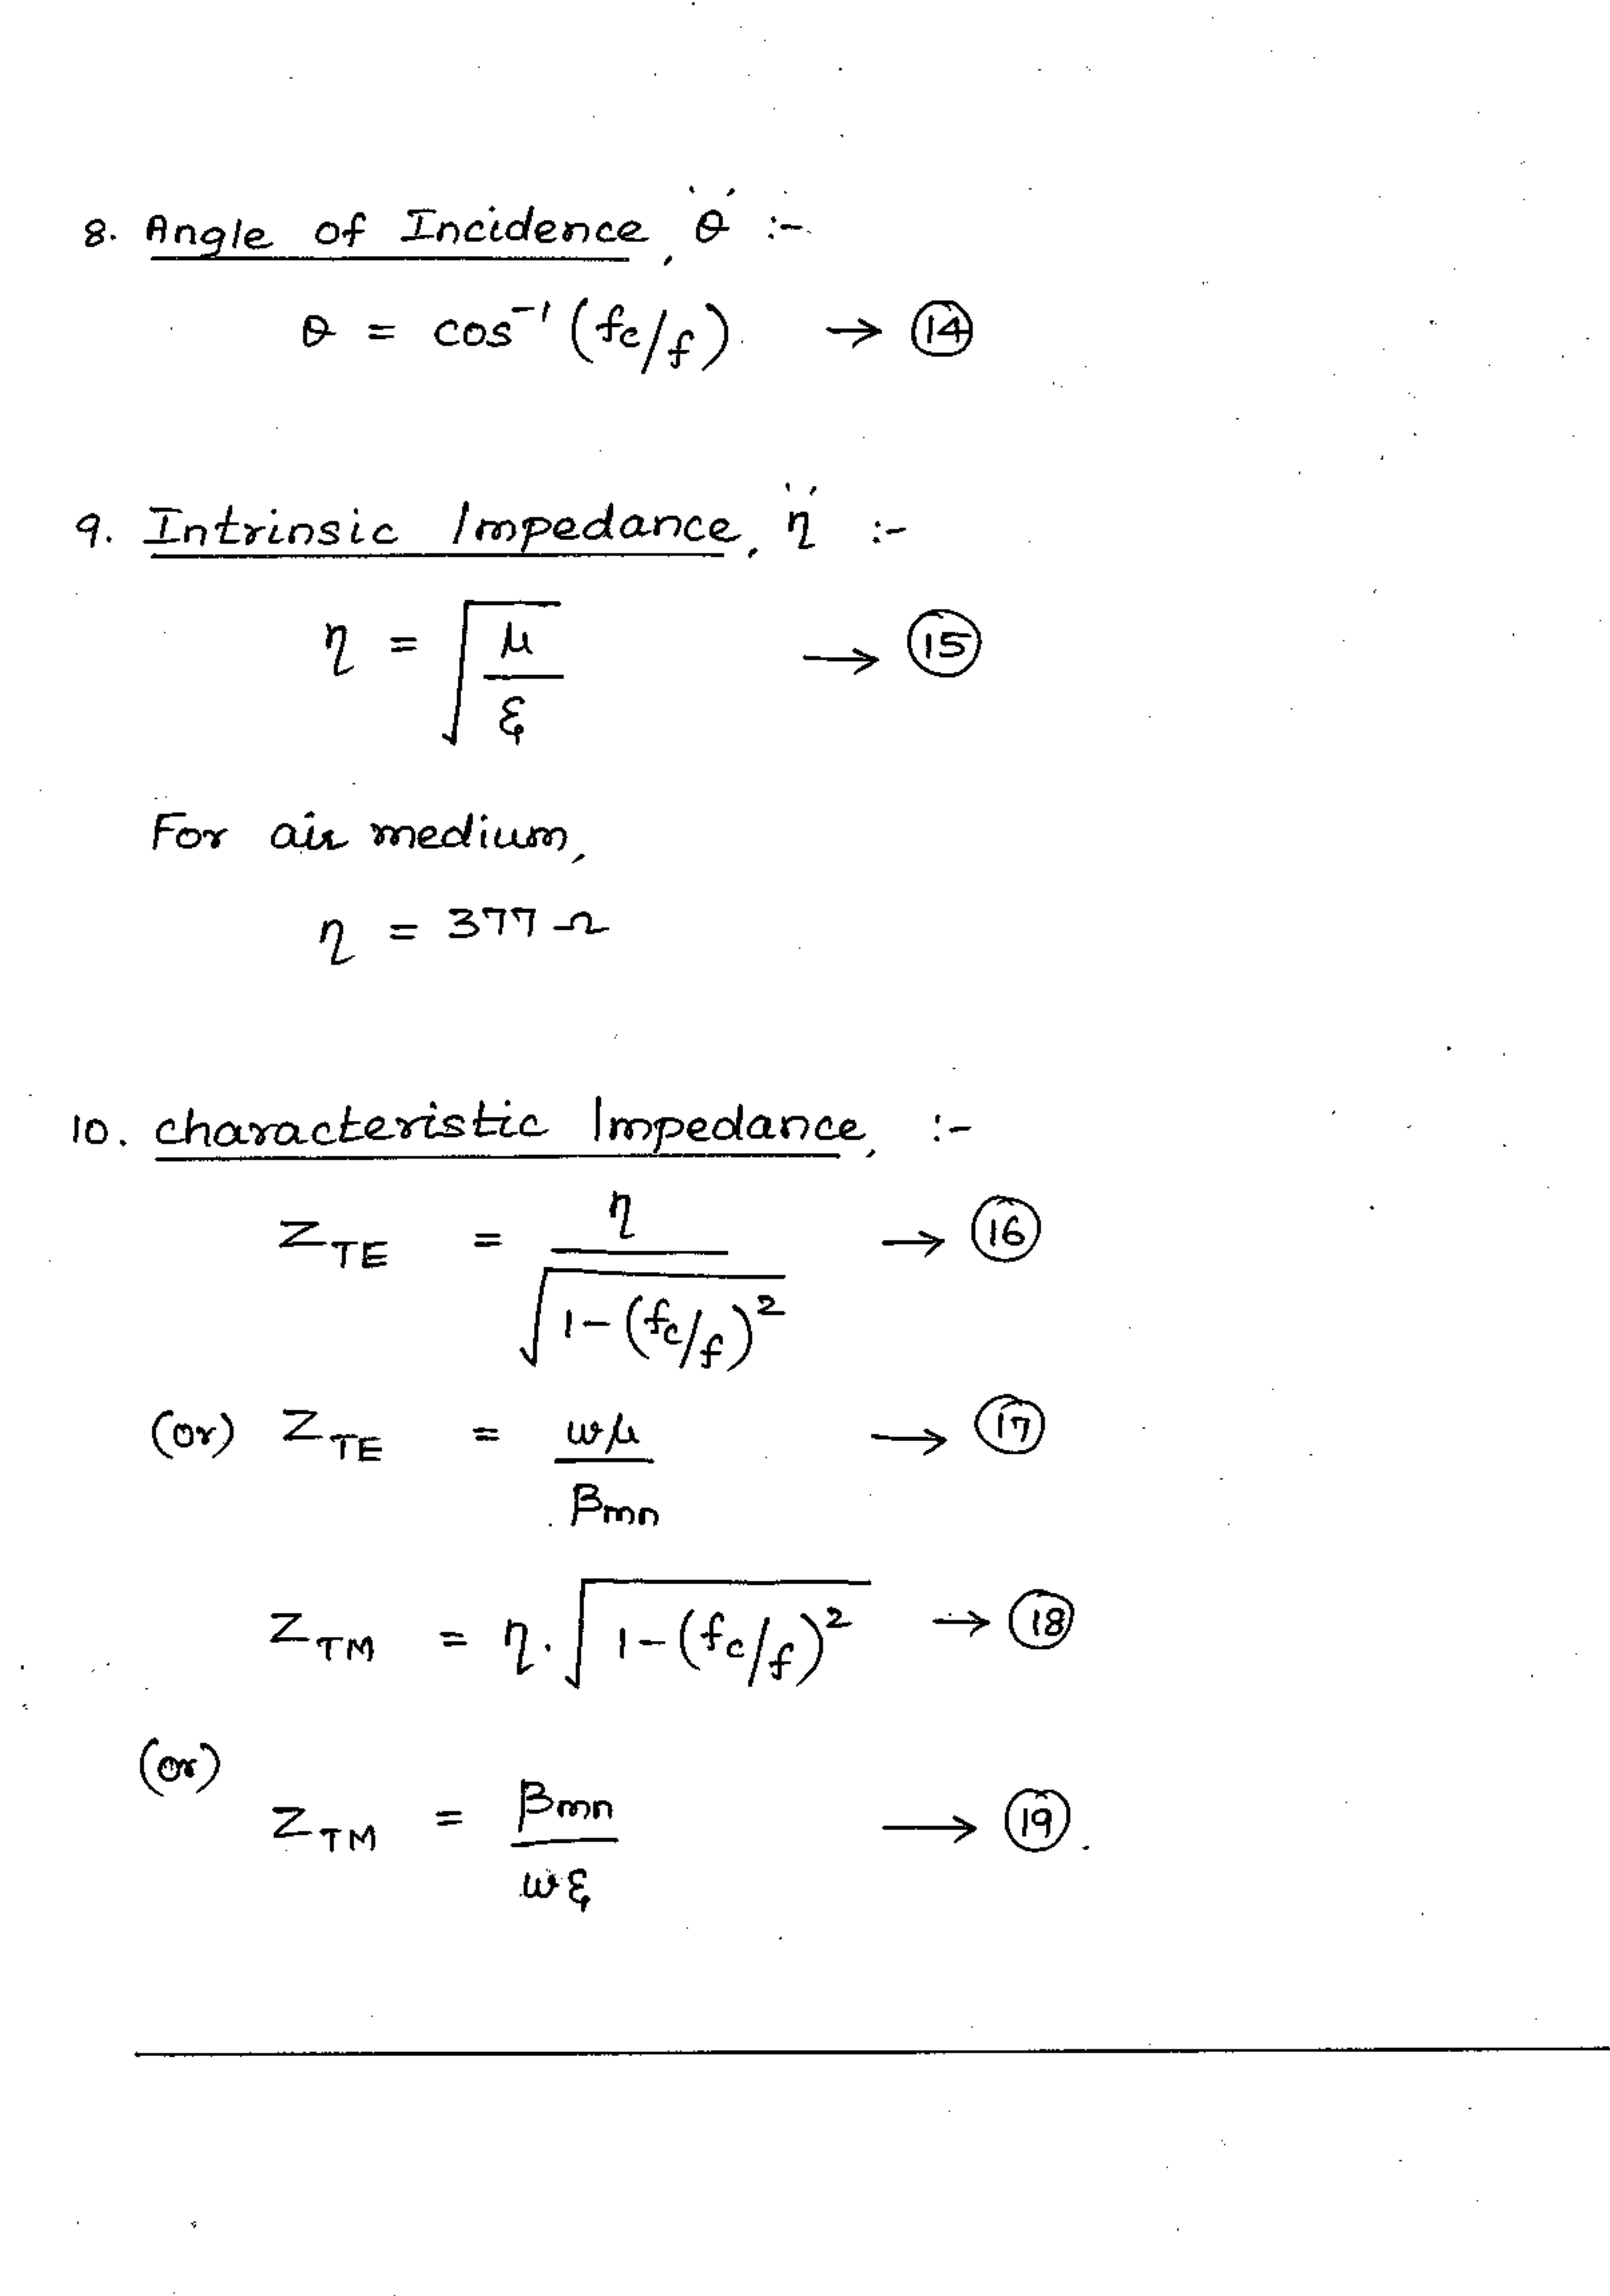 8. Angle of Incidence, 'θ' :-
θ = cos⁻¹ (fc/f) → (14)
9. Intrinsic Impedance, 'η' :-
η = √(μ/ε) → (15)
For air medium,
η = 377 Ω
10. characteristic Impedance, :-
Z_TE = η / √(1-(fc/f)²) → (16)
(or) Z_TE = ωμ / βmn → (17)
Z_TM = η. √(1-(fc/f)²) → (18)
(or)
Z_TM = βmn / ωε → (19).